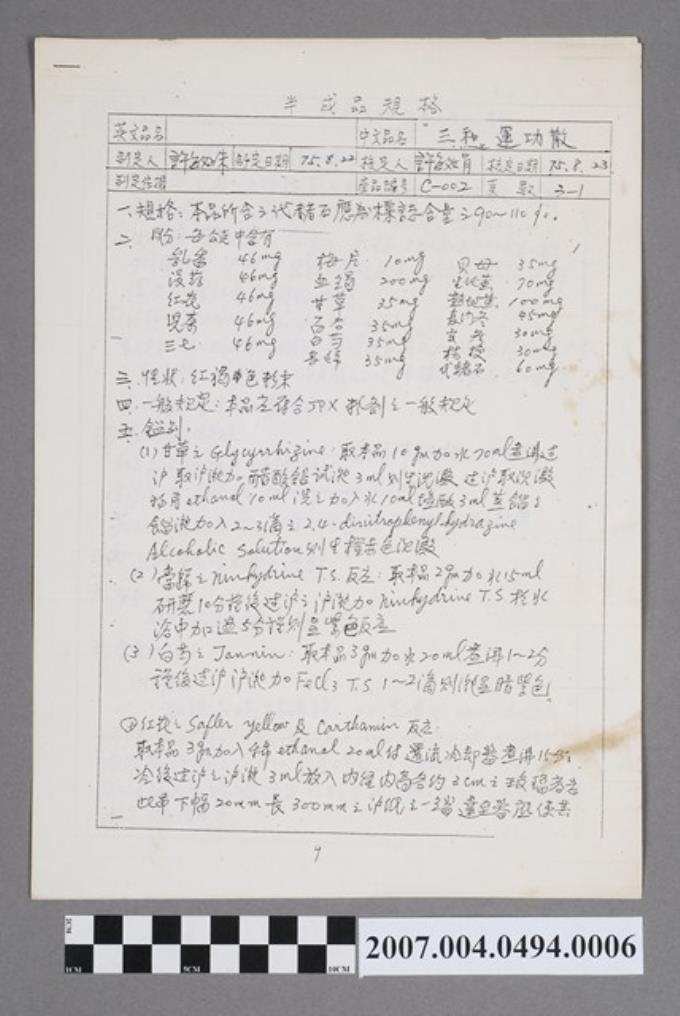 半成品規格
英文品名 中文品名 "三和"運功散
制定人 制定日期 75.8.22 核定人 核定日期 75.8.23
制定依據 產品編號 C-002 頁數 3-1
一、規格：本品所含之代赭石應為標誌含量之90~110%。
二、成份：每公克中含有
乳香 46mg 梅片 10mg 貝母 35mg
沒藥 46mg 血竭 200mg 生地黃 70mg
紅花 46mg 甘草 35mg 熟地黃 100mg
兒茶 46mg 百合 35mg 麥門冬 45mg
三七 46mg 白芍 35mg 玄參 30mg
當歸 35mg 桔梗 30mg
代赭石 60mg
三、性狀：紅褐色粉末
四、一般規定：本品應符合JPX散劑之一般規定
五、鑑別：
(1)甘草之Glycyrrhizine：取本品10gm加水70ml煮沸過
沪取沪液加醋酸鉛試液3ml則生沈澱過沪取沈澱
ethanol 10ml洗之加入水10ml 3ml蒸餾之
餾液加入2~3滴之2,4-dinitrophenylhydrazine
Alcoholic Solution則生橙赤色沈澱
(2)當歸之Ninhydrine T.S.反應：取本品2gm加水15ml
研磨10分鐘後過沪之沪液加Ninhydrine T.S 於水
浴中加溫5分鐘則呈紫色反應
(3)白芍之Tannin：取本品3gm加水20ml煮沸1~2分
鐘後過沪沪液加FeCl3 T.S 1~2滴則液呈暗紫色
④紅花之Safler yellow及Carthamin反應
取本品3gm加入稀ethanol 20ml付還流冷却器煮沸15分，
冷後過沪之沪液3ml放入內徑內高各約3cm之玻璃容器
吊下幅20mm長300mm之沪紙之一端達至器底使其
9
2007.004.0494.0006
1CM
2CM
5CM
10CM